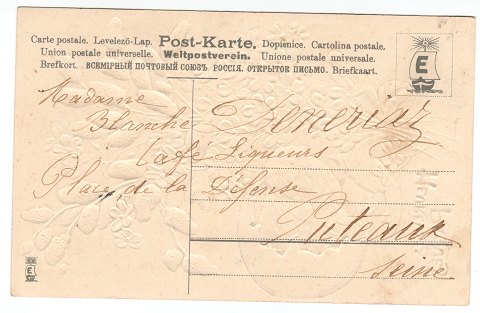 Carte postale. Levelezö-Lap. Post-Karte. Dopisnice. Cartolina postale.
Union postale universelle. Weltpostverein. Unione postale universale.
Brefkort. ВСЕМІРНЫЙ ПОЧТОВЫЙ СОЮЗЪ. РОССІЯ. ОТКРЫТОЕ ПИСЬМО. Briefkaart.
E
Madame
Blanche Deneriaz
Café Liqueurs
Place de la Défense
Puteaux
Seine
E